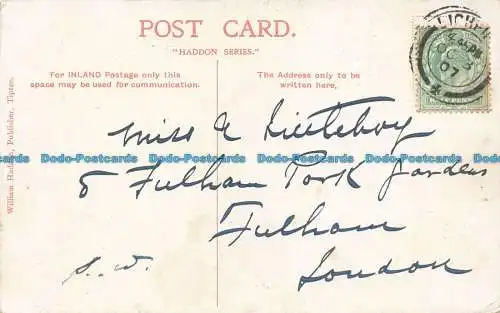 POST CARD.
"HADDON SERIES."
For INLAND Postage only this
space may be used for communication.
The Address only to be
written here,
LICHFI
OC 3
07
HALFPENNY
William Publisher, Tipton.
Miss E Littleboy
8 Fulham Park Gardens
Fulham
London
S.W.
Dodo-Postcards Dodo-Postcards Dodo-Postcards Dodo-Postcards